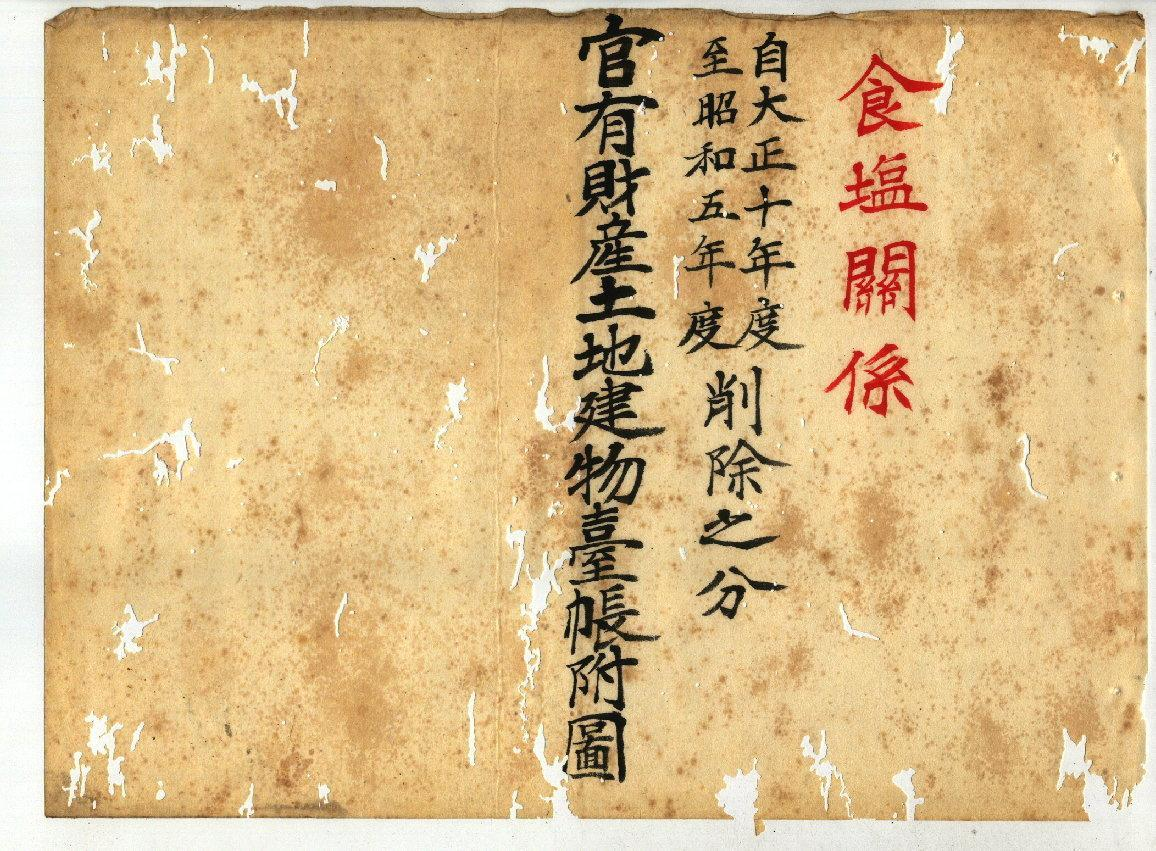 食塩關係
自大正十年度
至昭和五年度
削除之分
官有財産土地建物臺帳附圖